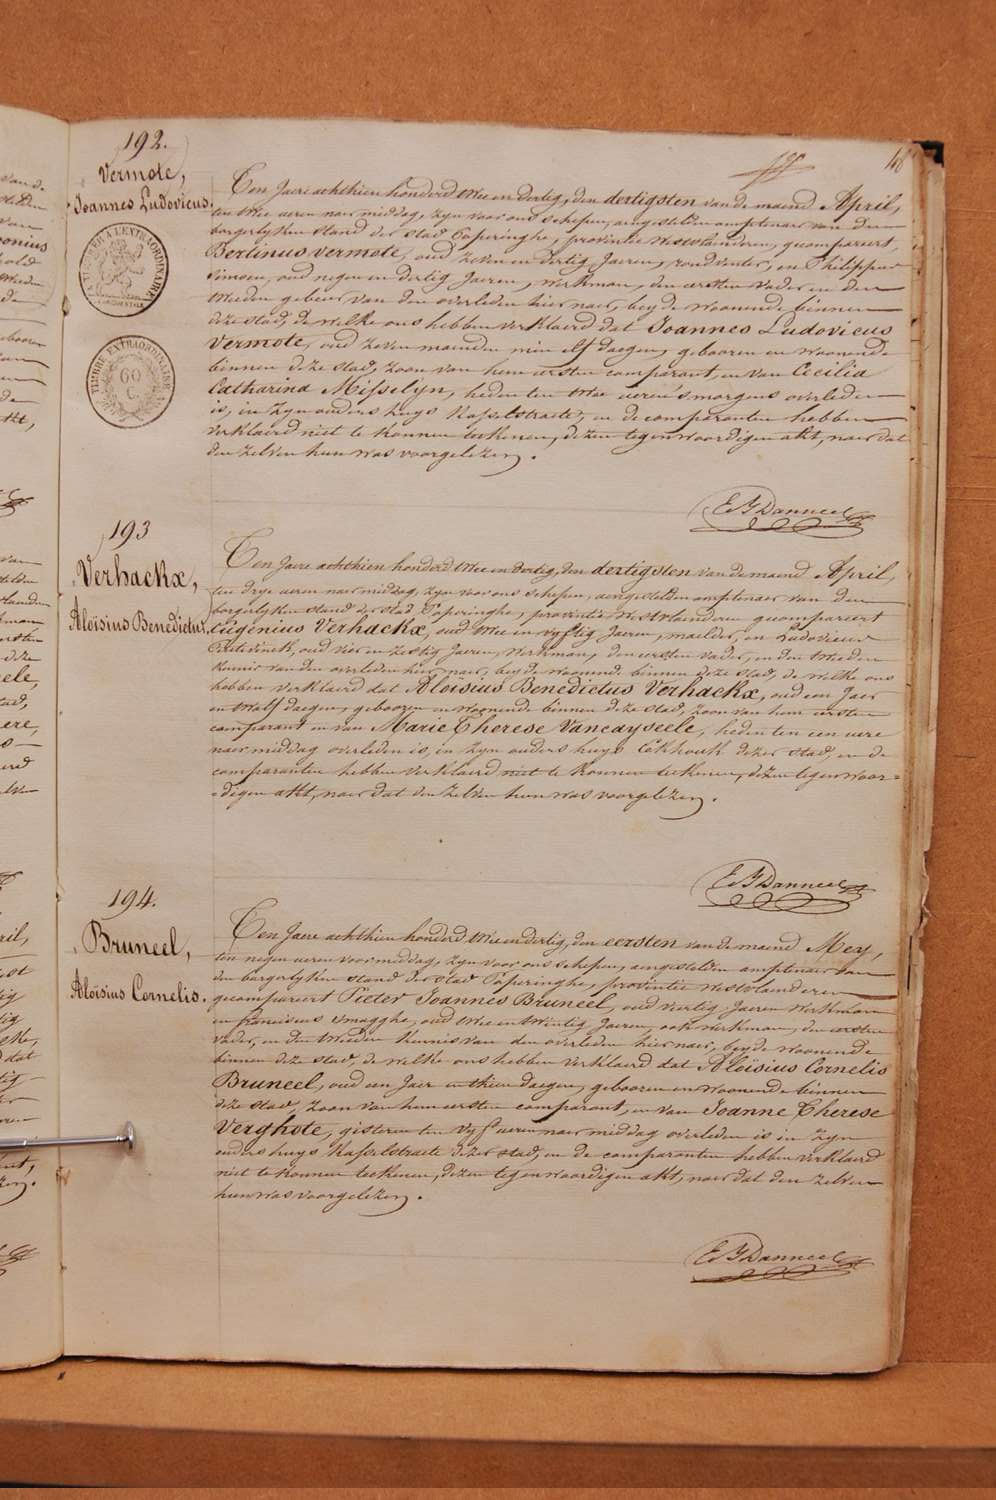 192.
Vermote,
Joannes Ludovicus.
TIMBRE EXTRAORDINAIRE
60
C
Ten Jaere achthien honderd twee en dertig, den dertigsten van de maend April,
ten twee ueren naer middag, zyn voor ons schepen, aengestelden amptenaer van den
borgerlyken stand der stad Poperinghe, provintie Westvlaenderen, gecompareert,
Bertinus Vermote, oud zeven en dertig Jaeren, en Philippus
oud negen en dertig Jaeren, werkman, den eersten vader en den
tweeden gebuer van den overleden hier naer, beyde woonende binnen
deze stad, de welke ons hebben verklaerd dat Joannes Ludovicus
Vermote, oud zeven maenden min elf daegen, gebooren en woonende
binnen deze stad, zoon van hem eersten comparant, en van Cecilia
Catharina Misselyn, heden ten twee ueren 's morgens overleden
is, in zyn ouders huys Kasselstraete, en de comparanten hebben
verklaerd niet te konnen teekenen, dezen tegenwoordigen akt, naer dat
den zelven hun was voorgelezen.
E J Danneel
193
Verhackx,
Aloïsius Benedictus.
Ten Jaere achthien honderd twee en dertig, den dertigsten van de maend April,
ten drye ueren naer middag, zyn voor ons schepen, aengestelden amptenaer van den
borgerlyken stand der stad Poperinghe, provintie Westvlaenderen gecompareert
Eugenius Verhackx, oud twee en vyftig Jaeren, maelder, en Ludovicus
oud vier en zestig Jaeren, werkman, den eersten vader, en den tweeden
kennis van den overleden hier naer, beyde woonende binnen deze stad, de welke ons
hebben verklaerd dat Aloïsius Benedictus Verhackx, oud een Jaer
en twalf daegen, gebooren en woonende binnen deze stad, zoon van hem eersten
comparant en van Marie Therese Vancayseele, heden ten een uere
naer middag overleden is, in zyn ouders huys dezer stad, en de
comparanten hebben verklaerd niet te konnen teekenen, dezen tegenwoor=
=digen akt, naer dat den zelven hun was voorgelezen.
E J Danneel
194.
Bruneel,
Aloïsius Cornelis.
Ten Jaere achthien honderd twee en dertig, den eersten van de maend Mey,
ten negen ueren voor middag, zyn voor ons schepen, aengestelden amptenaer van
den borgerlyken stand der stad Poperinghe, provintie Westvlaenderen
gecompareert Pieter Joannes Bruneel, oud veertig Jaeren werkman
en franciscus Smagghe, oud twee en twintig Jaeren, ook werkman, den eersten
vader, en den tweeden kennis van den overleden hier naer, beyde woonende
binnen deze stad, de welke ons hebben verklaerd dat Aloïsius Cornelis
Bruneel, oud een Jaer en thien daegen, gebooren en woonende binnen
deze stad, zoon van hem eersten comparant, en van Joanne Therese
Verghote, gisteren ten vyf ueren naer middag overleden is in zyn
ouders huys Kasselstraete dezer stad, en de comparanten hebben verklaerd
niet te konnen teekenen, dezen tegenwoordigen akt, naer dat den zelven
hun was voorgelezen.
E J Danneel